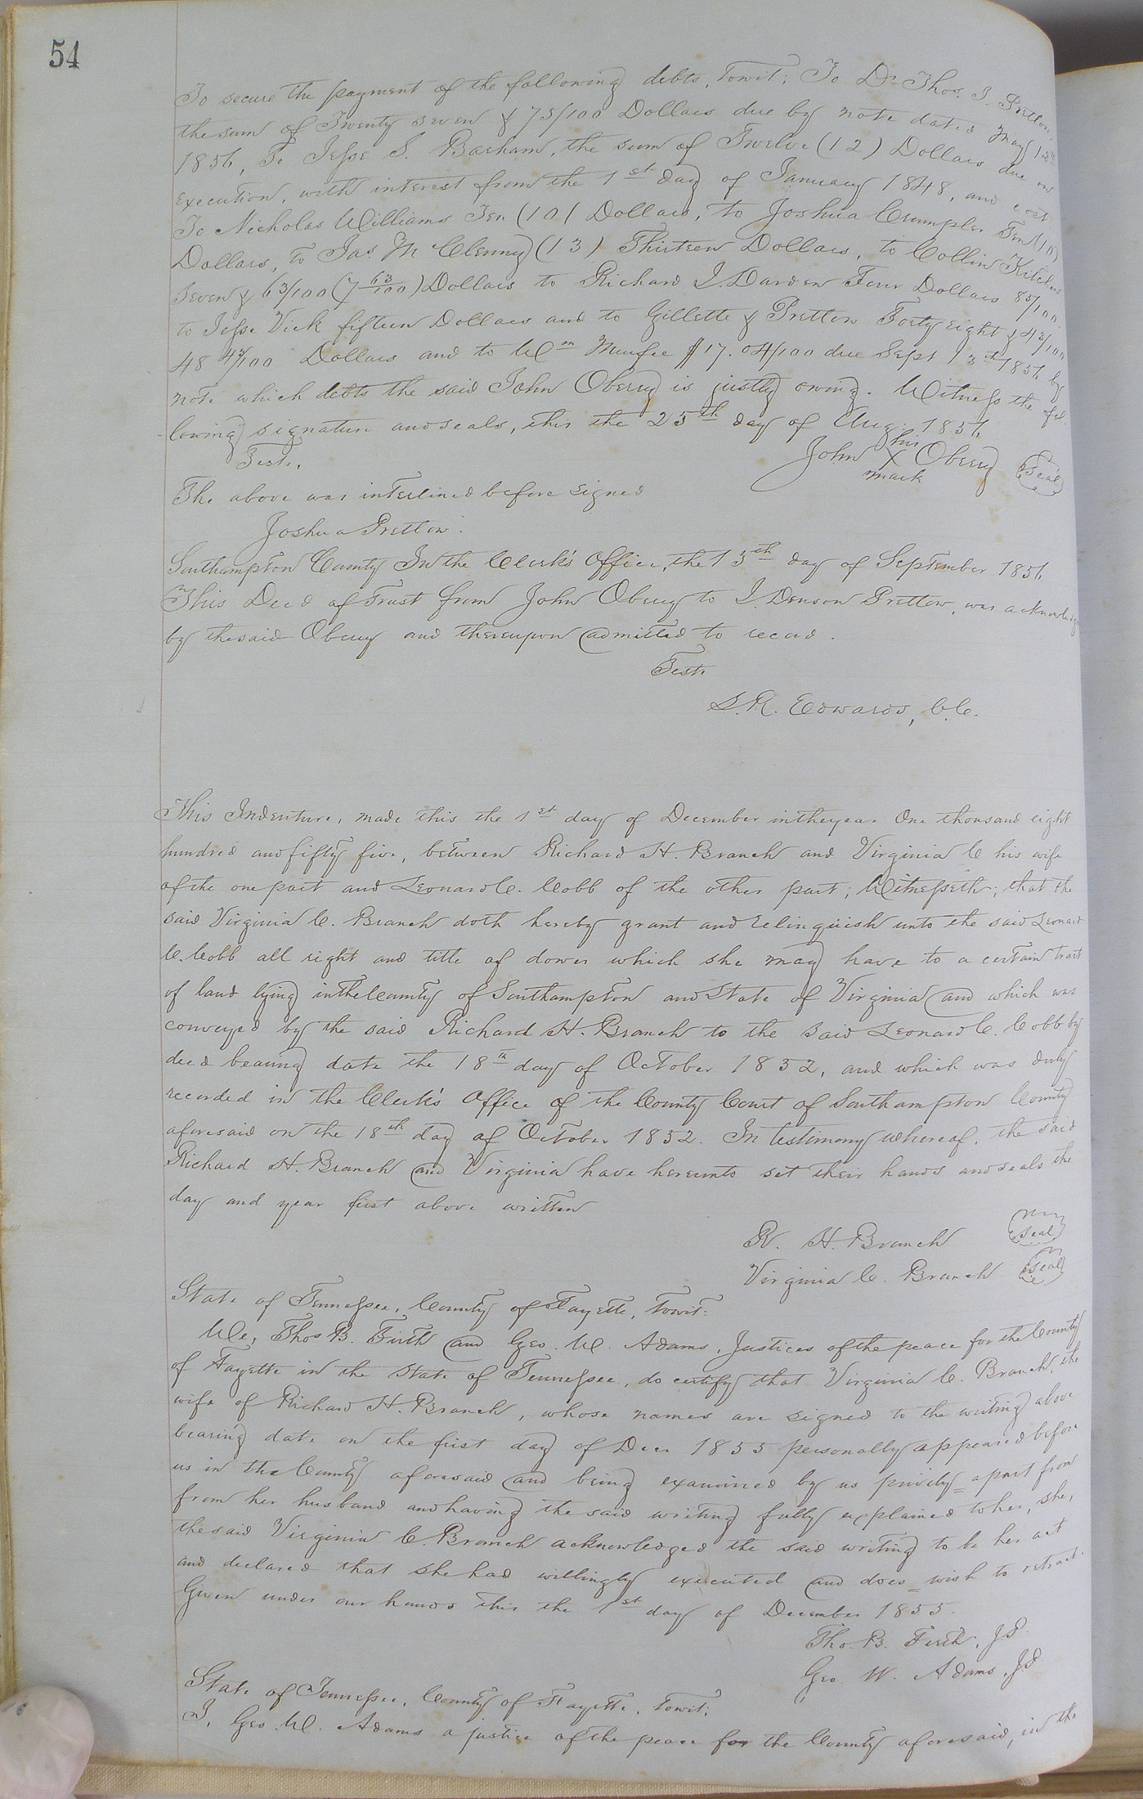 54
To secure the payment of the following debts, Towit: To Dr Thos. J. Pretlow
the sum of Twenty seven & 75/100 Dollars due by note dated May 12th
1856, To Jesse S. Barham, the sum of Twelve (12) Dollars due on
execution, with interest from the 1st day of January 1848, and cost
To Nicholas Williams Ten (10) Dollars, to Joshua Crumpler Ten (10)
Dollars, to Jas M Clenny (13) Thirteen Dollars, to Collin Kitchen
Seven & 63/100 (7 63/100) Dollars to Richard J. Darden Four Dollars 85/100
to Jesse Vick fifteen Dollars and to Gillette & Pretlow Forty eight & 42/100
48 42/100 Dollars and to Wm Murfee $17.04/100 due Sept 13th 1856 by
note which debts the said John Oberry is justly owing. Witness the fol
lowing signature and seals, this the 25th day of Aug. 1856
Test. John his X mark Oberry Seal
The above was interlined before signed
Joshua Pretlow.
Southampton County In the Clerk's Office, the 15th day of September 1856
This Deed of Trust from John Oberry to J. Denson Pretlow, was acknowledged
by the said Oberry and thereupon admitted to record.
Teste
L. R. Edwards, C.C.
This Indenture, made this the 1st day of December in the year One thousand eight
hundred and fifty five, between Richard H. Branch and Virginia C his wife
of the one part and Leonard C. Cobb of the other part; Witnesseth; that the
said Virginia C. Branch doth hereby grant and relinquish unto the said Leonard
C. Cobb all right and title of dower which she may have to a certain tract
of land lying in the County of Southampton and State of Virginia and which was
conveyed by the said Richard H. Branch to the said Leonard C. Cobb by
deed bearing date the 18th day of October 1852, and which was duly
recorded in the Clerk's Office of the County Court of Southampton County
aforesaid on the 18th day of October 1852. In testimony whereof, the said
Richard H. Branch and Virginia have hereunto set their hands and seals the
day and year first above written
R. H. Branch Seal
Virginia C. Branch Seal
State of Tennessee, County of Fayette, Towit:
We, Thos B. Firth and Geo. W. Adams, Justices of the peace for the County
of Fayette in the State of Tennessee, do certify that Virginia C. Branch, the
wife of Richard H. Branch, whose names are signed to the writing above
bearing date on the first day of Decr 1855 personally appeared before
us in the County aforesaid and being examined by us privily apart from
from her husband and having the said writing fully explained to her, she,
the said Virginia C. Branch acknowledged the said writing to be her act
and declared that she had willingly executed and does wish to retract.
Given under our hands this the 1st day of December 1855.
Tho. B. Firth, J.P.
Geo. W. Adams, J.P.
State of Tennessee, County of Fayette, Towit:
I, Geo. W. Adams a justice of the peace for the County aforesaid, in the